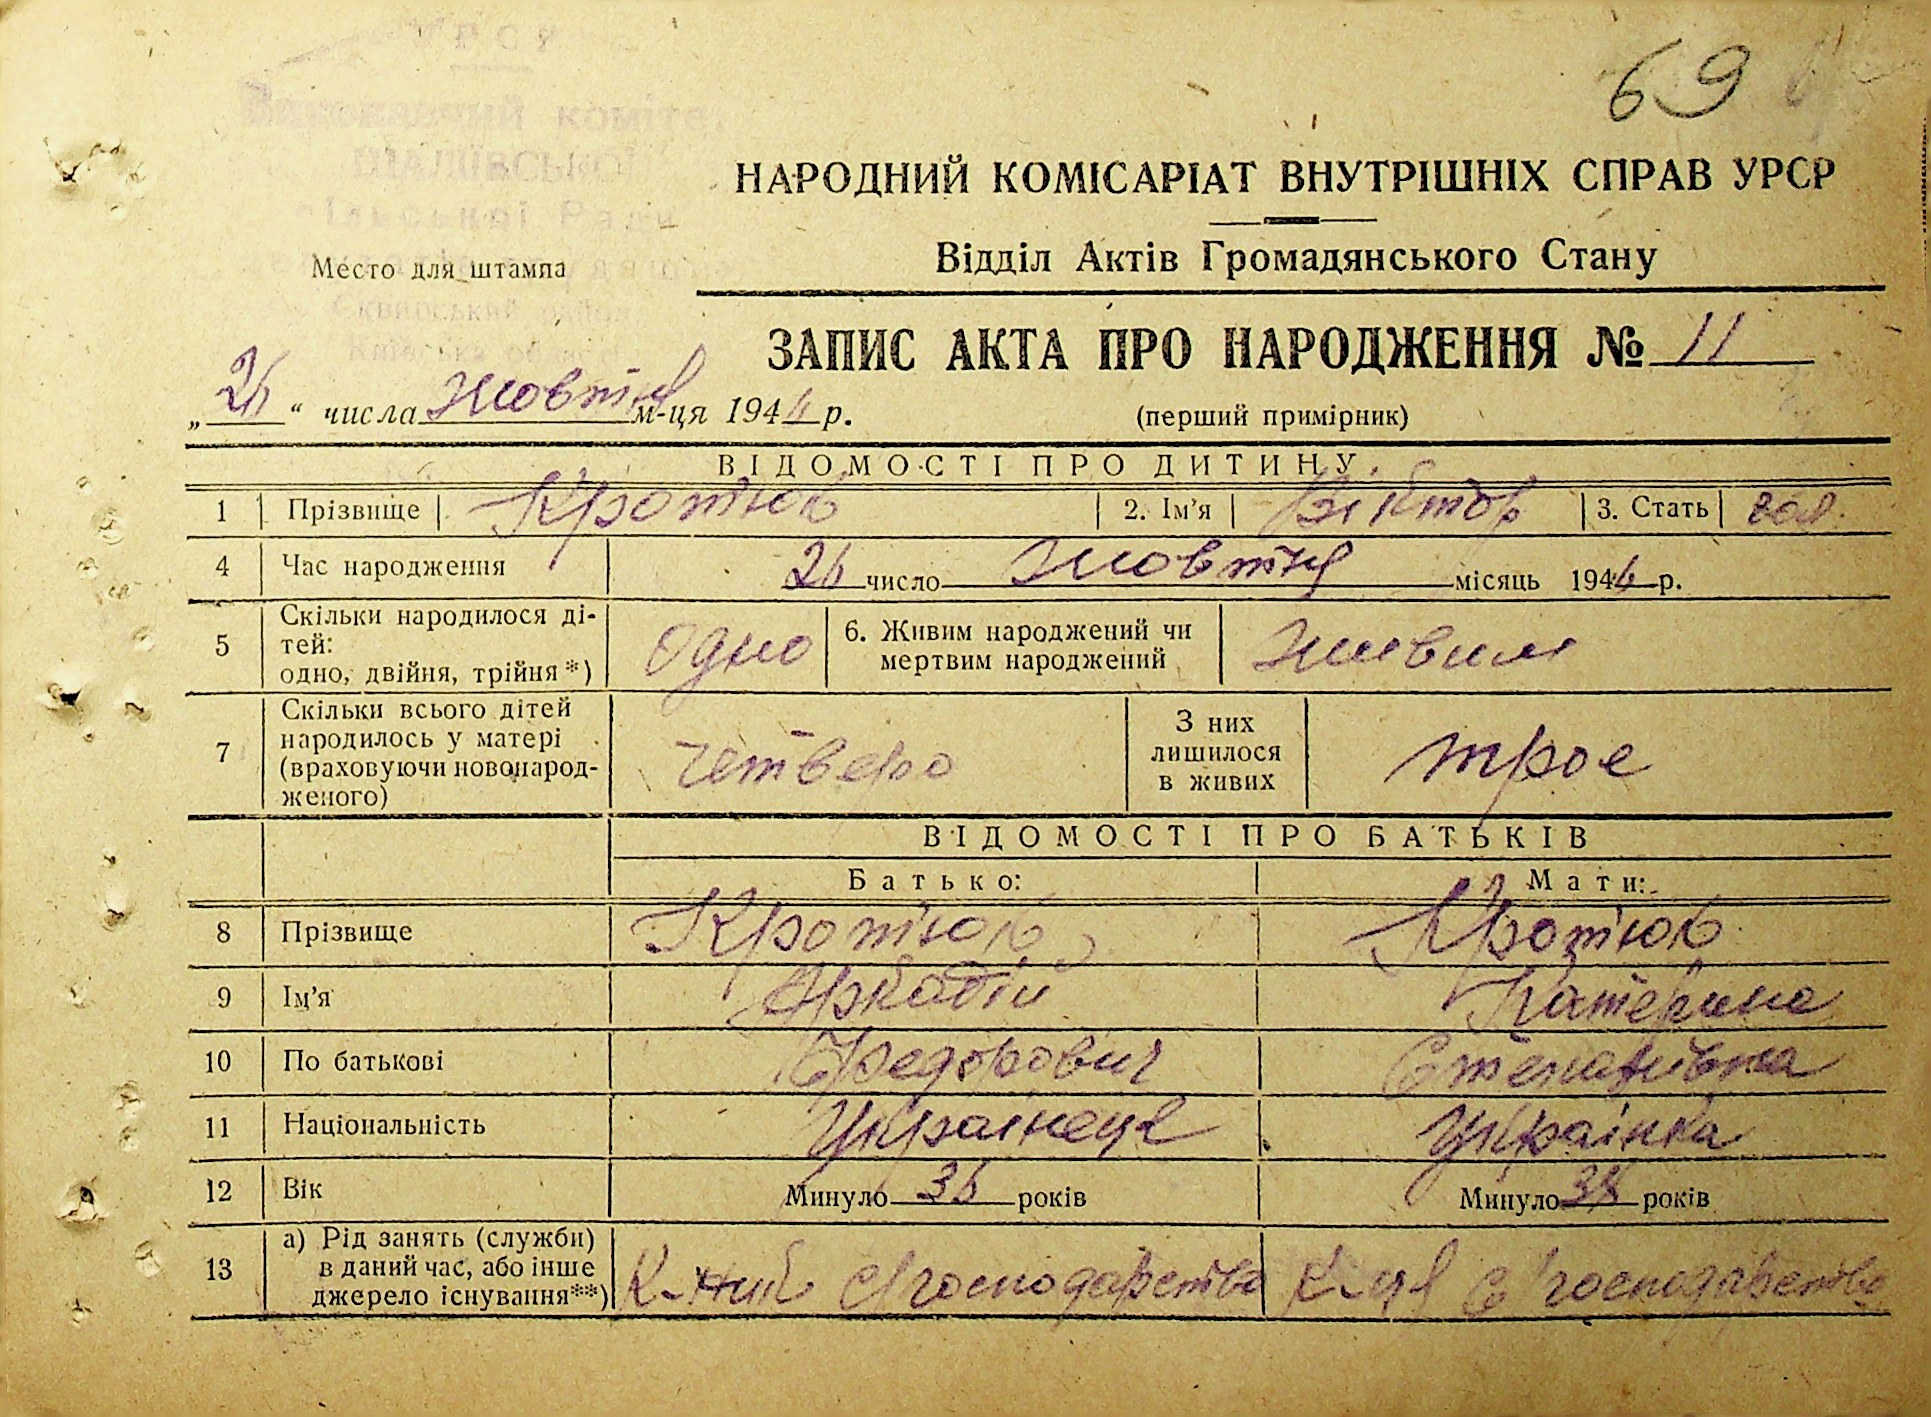 69
НАРОДНИЙ КОМІСАРІАТ ВНУТРІШНІХ СПРАВ УРСР
Место для штампа
Відділ Актів Громадянського Стану
ЗАПИС АКТА ПРО НАРОДЖЕННЯ № 11
„26“ числа жовтня м-ця 1944 р.
(перший примірник)
ВІДОМОСТІ ПРО ДИТИНУ
1 Прізвище Кротюк 2. Ім'я Віктор 3. Стать чол.
4 Час народження 26 число жовтня місяць 1944 р.
5 Скільки народилося ді-
тей:
одно, двійня, трійня*) одно
6. Живим народжений чи
мертвим народжений живим
7 Скільки всього дітей
народилось у матері
(враховуючи новонарод-
женого) четверо
З них
лишилося
в живих троє
ВІДОМОСТІ ПРО БАТЬКІВ
Батько: Мати:
8 Прізвище Кротюк Кротюк
9 Ім'я Аркадій Катерина
10 По батькові Федорович Степанівна
11 Національність Українець Українка
12 Вік Минуло 36 років Минуло років
13 а) Рід занять (служби)
в даний час, або інше
джерело існування**) с/господарство с/господарство